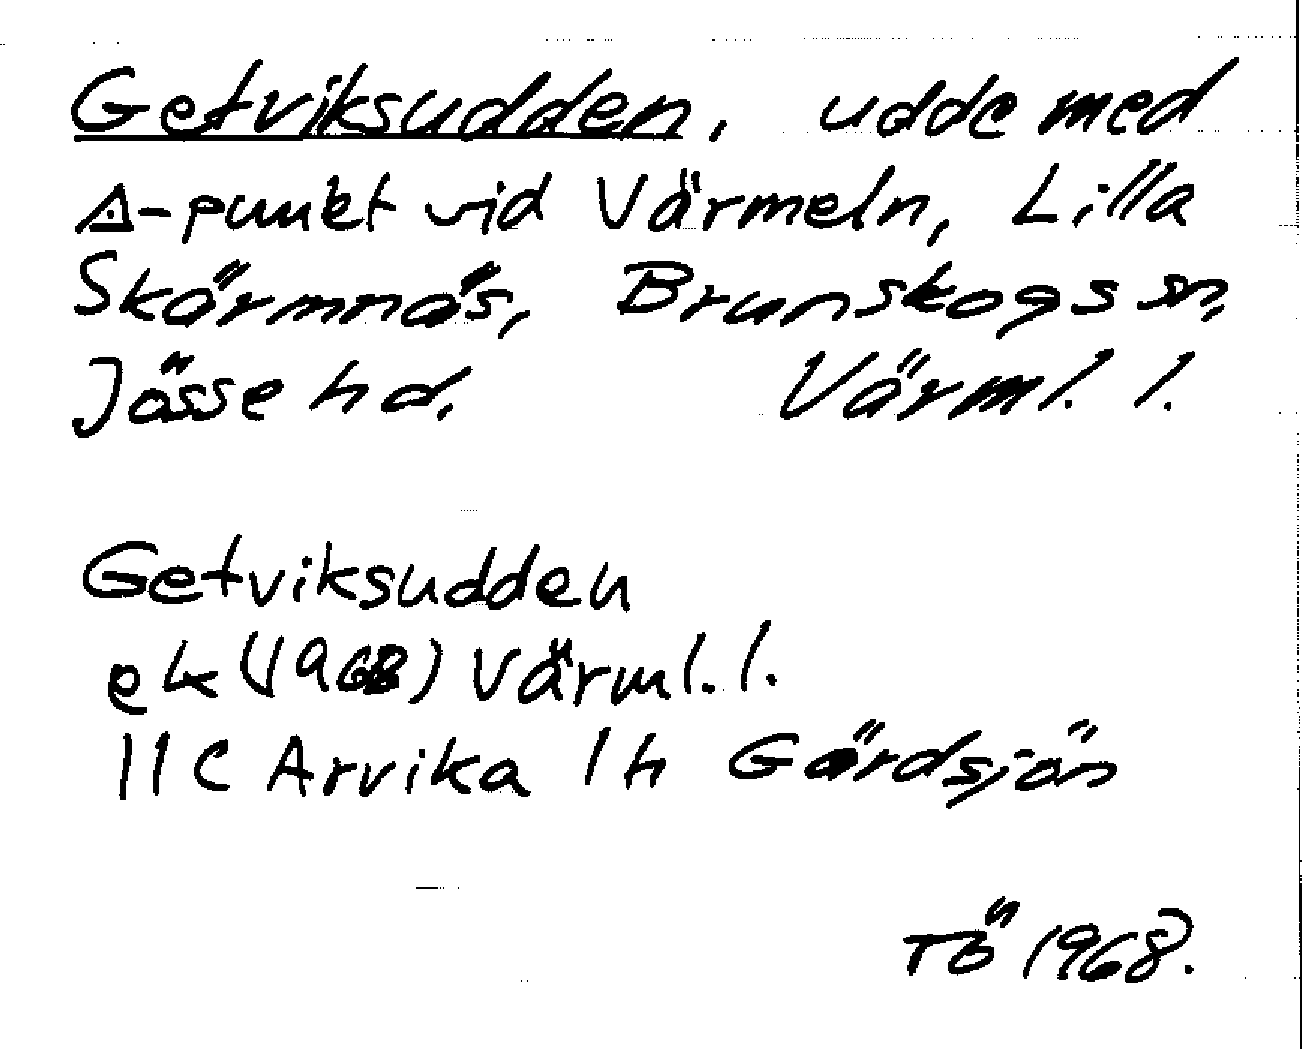 Getviksudden, udde med
△-punkt vid Värmeln, Lilla
Skärmnäs, Brunskogs sn,
Jösse hd. Värml. l.
Getviksudden
ek (1968) Värml. l.
11C Arvika 1h Gärdsjön
TÖ 1968.